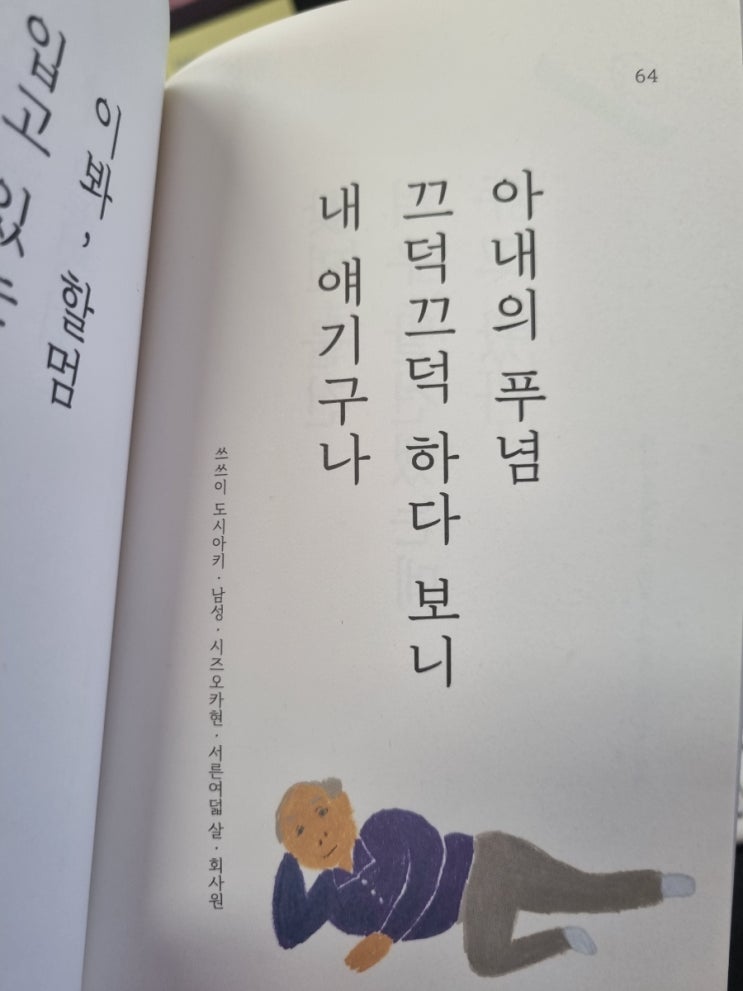 64
아내의 푸념
끄덕끄덕 하다 보니
내 얘기구나
쓰쓰이 도시아키 · 남성 · 시즈오카현 · 서른여덟 살 · 회사원